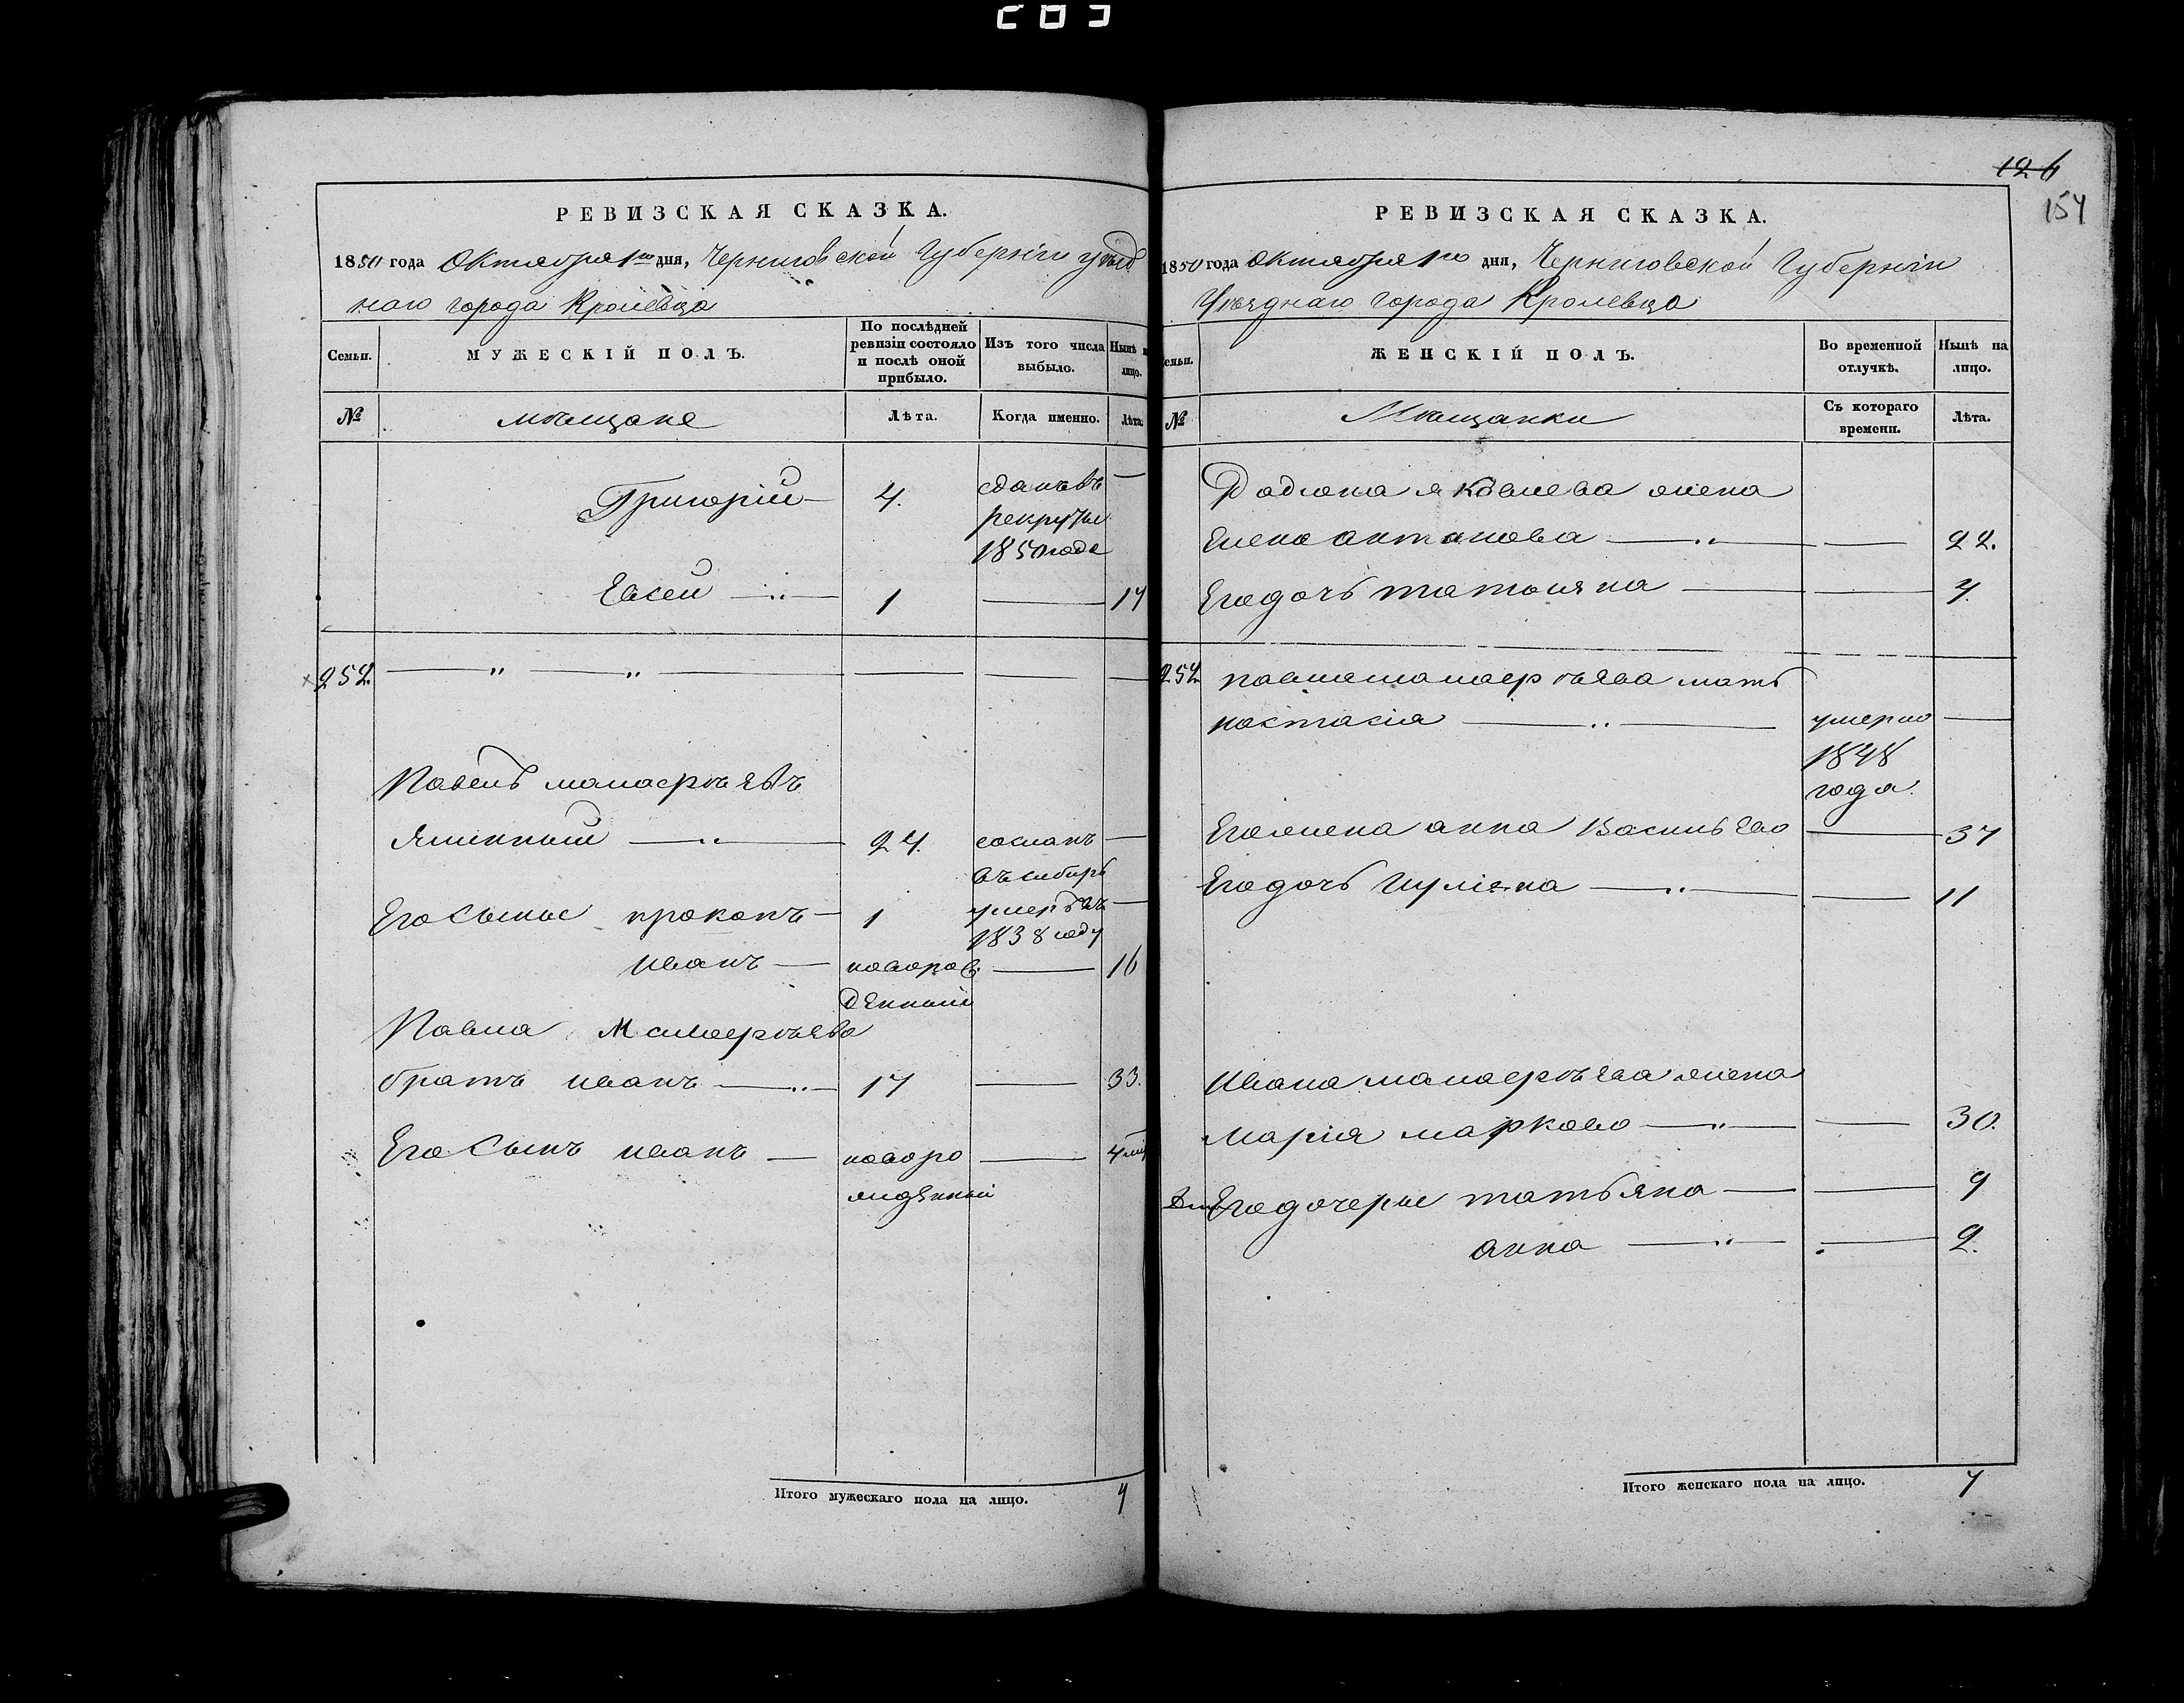 126
154
РЕВИЗСКАЯ СКАЗКА.
1850 года Октября 1го дня, Черниговской Губерніи уѣзд
наго города Кролевца
Семьи.
МУЖЕСКІЙ ПОЛЪ.
По послѣдней ревизіи состояло и послѣ оной прибыло.
Изъ того числа выбыло.
Нынѣ на лицо.
№
мѣщане
Лѣта.
Когда именно.
Лѣта.
Григорій — 4. сданъ въ —
рекруты
1850 года
Евсей — 1 — 17
252. — " — " — — — —
Павелъ малаерѣевъ
— " — 24. сосланъ —
въ сибирь
Его Сыны прокопъ — 1 умерѣ въ —
1838 году
иванъ — новорож — 16
денный
Павла Малаерѣева
братъ иванъ — " — 17 — 33.
Его Сынъ иванъ — новоро — 4 мѣ
жденный
Итого мужескаго пола на лицо. 4
РЕВИЗСКАЯ СКАЗКА.
1850 года октября 1го дня, Черниговской Губерніи
Уѣзднаго города Кролевца
Семьи.
ЖЕНСКІЙ ПОЛЪ.
Во временной отлучкѣ.
Нынѣ на лицо.
№
Мѣщанки
Съ котораго времени.
Лѣта.
Родиона яковлева жена
Елена антонова — " — — 22.
Его дочь татьяна — — 4.
252 павла малаерѣева мать
настасія — " — умерла —
1848
года.
Его жена анна Васильева — 37
Его дочь — " — — 11
Ивана малаерѣева жена
Марія маркова — " — — 30.
Его дочери татьяна — — 9
анна — " — — 2.
Итого женскаго пола на лицо. 7